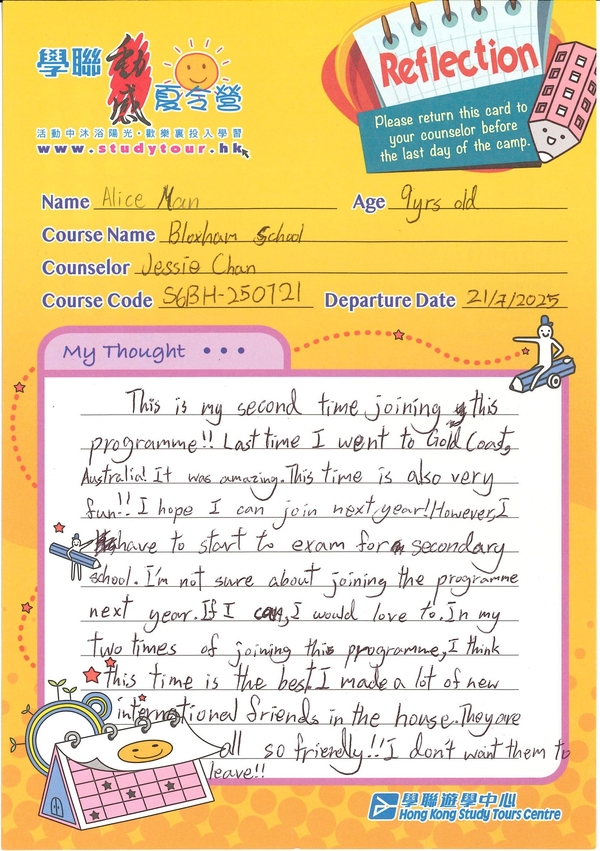 學聯 動感 夏令營
活動中沐浴陽光・歡樂裏投入學習
www.studytour.hk
Reflection
Please return this card to
your counselor before
the last day of the camp.
Name Alice Man
Age 9yrs old
Course Name Bloxham School
Counselor Jessie Chan
Course Code S6BH-250721 Departure Date 21/7/2025
My Thought • • •
This is my second time joining this
programme!! Last time I went to Gold Coast,
Australia! It was amazing. This time is also very
fun!! I hope I can join next year! However, I
have to start to exam for secondary
school. I'm not sure about joining the programme
next year. If I can, I would love to. In my
two times of joining this programme, I think
this time is the best. I made a lot of new
international friends in the house. They are
all so friendly!! I don't want them to
leave!!
學聯遊學中心
Hong Kong Study Tours Centre